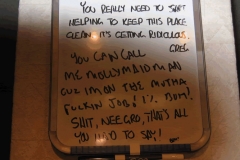 YOU REALLY NEED TO START
HELPING TO KEEP THIS PLACE
CLEAN. IT'S GETTING RIDICULOUS.
GREG
YOU CAN CALL
ME MOLLYMAID MAN
CUZ I'M ON THE MUTHA
FUCKIN JOB! 
SHIT, NEEGRO, THAT'S ALL
YOU HAD TO SAY!